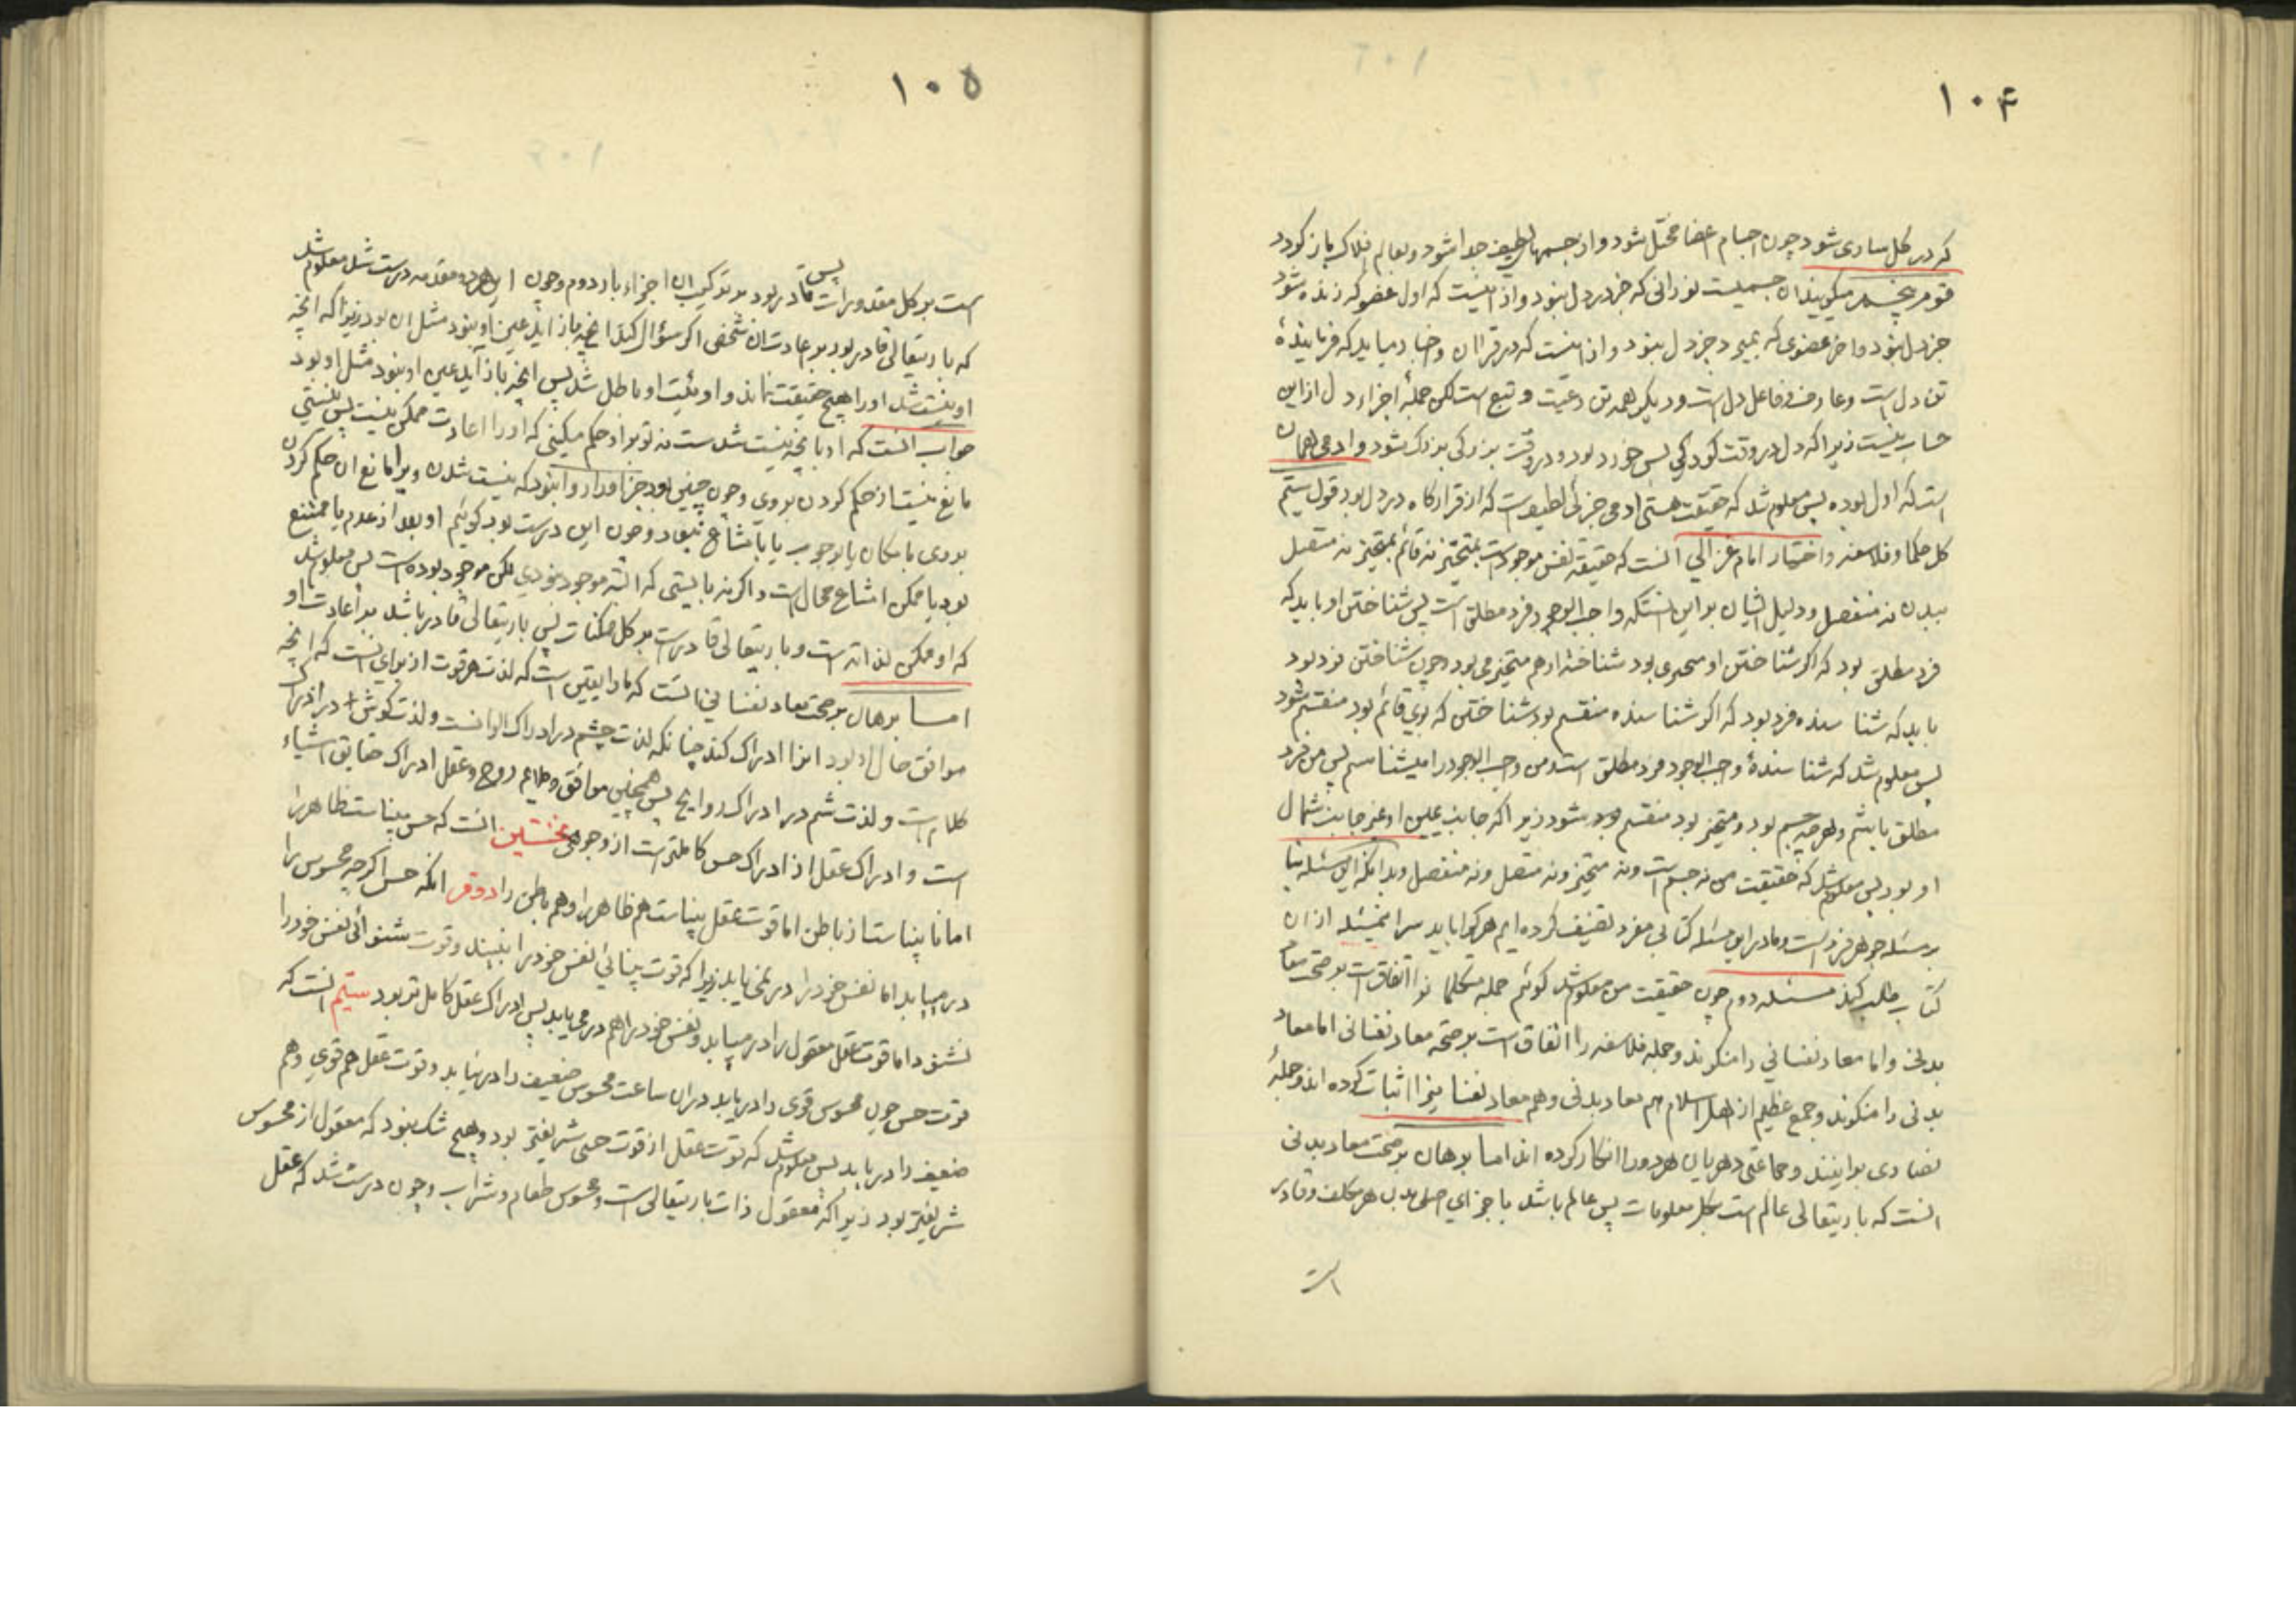 ۱۰۴
که در کل ساری شود چون اجسام اعضا مختل شود و از جسمها لطیف جدا شود و بعالم افلاک باز کردد
قوم پنجم میکویند ان جسمیست نورانی که جز در دل نبود و از اینست که اول عضو که زنده شود
جز دل نبود و اخر عضوی که بمیرد جز دل نبود و از اینست که در قران و اخبار میاید که فرمایندهٔ
تن دل است و عارف و فاعل دل است و دیکر همه تن رعیت و تبع است لکن جملهٔ اجزاء دل از این
حساب نیست زیرا که دل در وقت کودکی بس خورد بود و در وقت بزرکی بزرک شود و ادمی همان
است که اول بوده پس معلوم شد که حقیقت هستی ادمی جزئی لطیف است که از قرارکاه در دل بود قول ستم
کل حکما و فلاسفه و اختیار امام غزالی انست که حقیقة نفس موجودیست نه متحیّز نه قائم بمتحیز نه متصل
ببدن نه منفصل و دلیل ایشان بر این انستکه واجب الوجود فرد مطلق است پس شناختن او باید که
فرد مطلق بود که اکر شناختن او متحیزی بود شناختهٔ او هم متحیز می بود و چون شناختن فرد بود
باید که شناسنده فرد بود که اکر شناسنده منقسم بود شناختن که بوی قائم بود منقسم شود
پس معلوم شد که شناسندهٔ واجب الوجود فرد مطلق است و من واجب الوجود را میشناسم پس من فرد
مطلق باشم و هرچه جسم بود و متحیز بود منقسم بود شود زیرا اکر جانب یمین او غیر جانب شمال
او بود پس معلوم شد که حقیقت من نه جسم است و نه متحیز و نه متصل و نه منفصل و بدانکه این مسئله بنا
بر مسئله جوهر فرد است و ما در این مسئله کتابی مفرد تصنیف کرده ایم هر کرا باید سر این مسئله از ان
کتاب طلب کند مسئله دوم چون حقیقت من معلوم شد کوئیم جمله متکلمانرا اتفاق است بر صحت معاد
بدنی و اما معاد نفسانی را منکرند و جمله فلاسفه را اتفاق است بر صحة معاد نفسانی اما معاد
بدنی را منکرند و جمع عظیم از اهل اسلام هم معاد بدنی و هم معاد نفسانیرا اثبات کرده اند و جملهٔ
نصاری براینند و جماعتی دهریان هر دو را انکار کرده اند اما برهان بر صحت معاد بدنی
انست که باریتعالی عالم است بکل معلومات پس عالم باشد باجزای اصلی بدن هر مکلف و قادر
است
۱۰۵
است بر کل مقدورات پس قادر بود بر ترکیب ان اجزاء بار دوم و چون این هر دو مقدمه درست شد معلوم شد
که باریتعالی قادر بود بر اعادت ان شخص اکر سؤال کند انچه باز اید عین او نبود مثل ان بود زیرا که انچه
او نیست شد او را هیچ حقیقت نماند و اوئیت او باطل شد پس انچه باز آید عین او نبود مثل او بود
جواب انست که او بانچه نیست شدست نه تو بر او حکم میکنی که او را اعادت ممکن نیست پس نیستی
مانع نیست از حکم کردن بروی و چون چنین بود جز او را روا نبود که نیست شدن ویرا مانع ان حکم کردن
بروی بامکان یا بوجوب یا بامتناع نبود و چون این درست بود کوئیم او بعد از عدم یا ممتنع
بود یا ممکن امتناع محال است و اکر نه بایستی که البته موجود نبودی لکن موجود بوده است پس معلوم شد
که او ممکن لذاته است و باریتعالی قادرست بر کل ممکنات پس باریتعالی قادر باشد بر اعادت او
اما برهان بر صحت معاد نفسانی انست که ما را یقین است که لذت هر قوت از برای انست که انچه
موافق حال او بود انرا ادراک کند چنانکه لذت چشم در ادراک الوانست و لذت کوش در ادراک
کلام است و لذت شم در ادراک روایح پس همچنین موافق و ملایم روح و عقل ادراک حقایق اشیاء
است و ادراک عقل از ادراک حس کاملترست از وجوهی نخستین انست که حس بیناست ظاهر را
اما نابیناست از باطن اما قوت عقل بیناست هم ظاهر را و هم باطن را دوم انکه حس اکرچه محسوس را
در میابد اما نفس خود را در نمی یابد زیرا که قوت بینائی نفس خود را نبیند و قوت شنوائی نفس خود را
نشنود اما قوت عقل معقول را در میابد و نفس خود را هم در می یابد پس ادراک عقل کامل تر بود ستم انست که
قوت حس چون محسوس قوی را دریابد در ان ساعت محسوس ضعیف را در نیابد و قوت عقل هم قوی و هم
ضعیف را دریابد پس معلوم شد که قوت عقل از قوت حس شریفتر بود و هیچ شک نبود که معقول از محسوس
شریفتر بود زیرا که معقول ذات باریتعالی است و محسوس طعام و شراب و چون درست شد که عقل